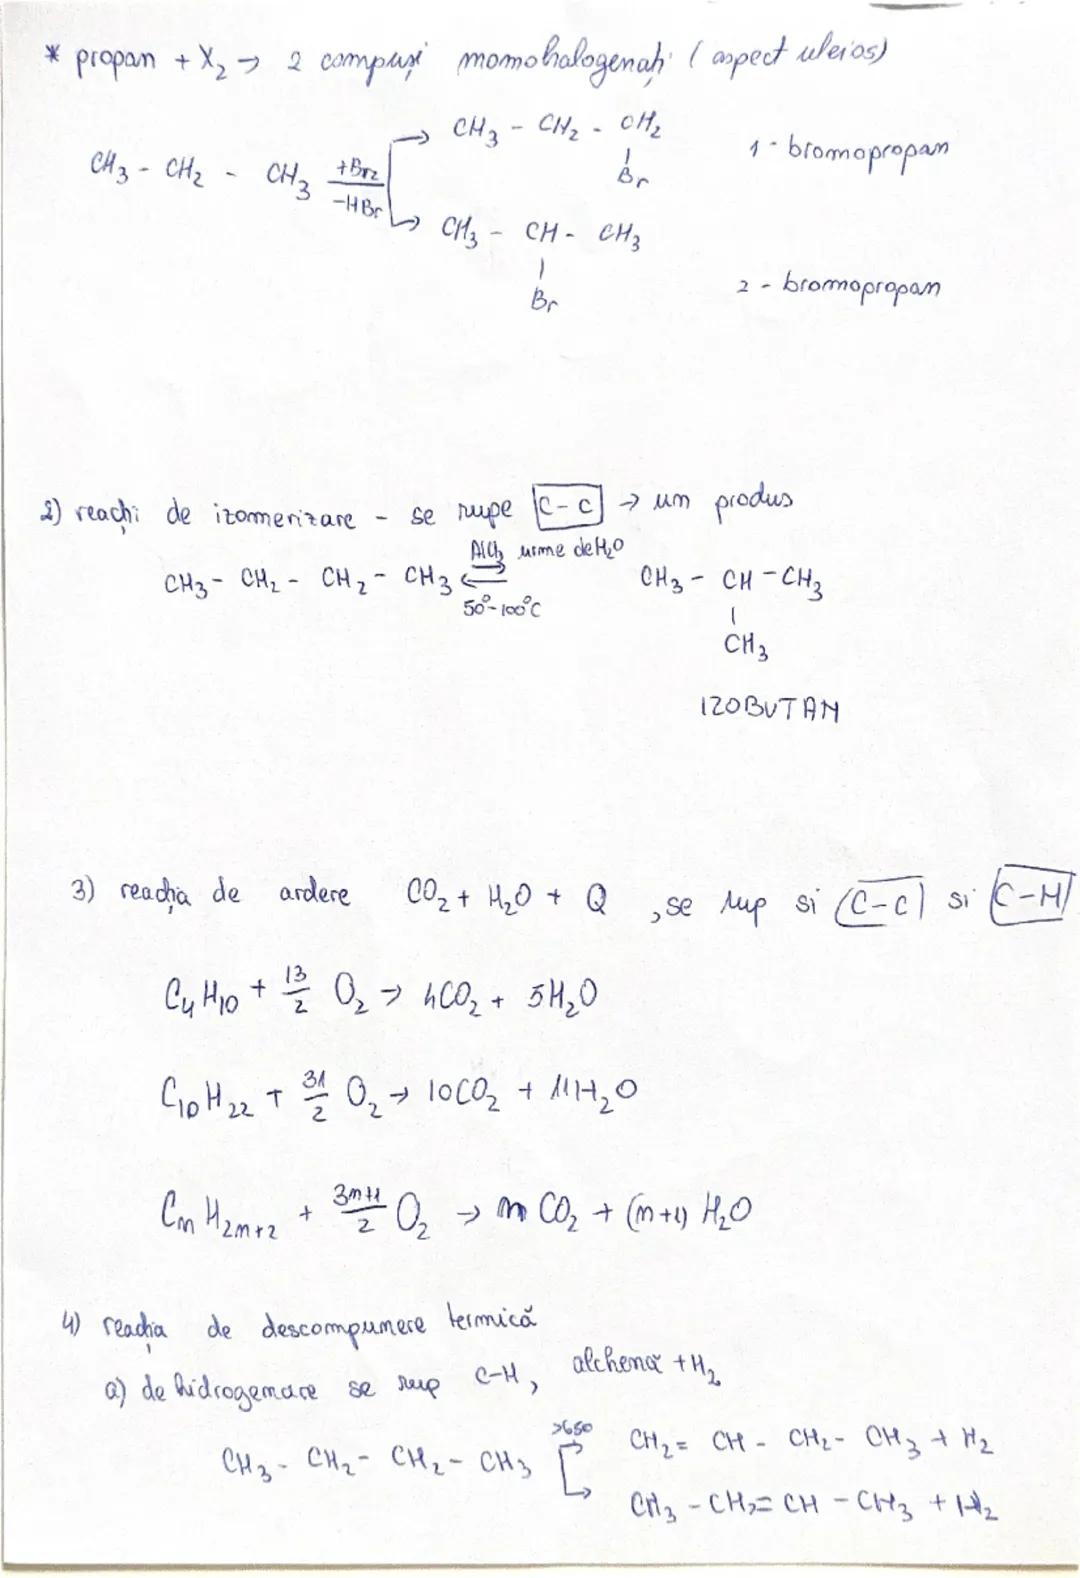 * propan + X₂ → 2 compuși monohalogenați (aspect uleios)
CH₃ - CH₂ - CH₂
|
Br
1 - bromopropan
CH₃ - CH₂ - CH₃ +Br₂
-HBr
CH₃ - CH - CH₃
|
Br
2 - bromopropan
2) reacții de izomerizare - se rupe C-C → un produs
AlCl₃ urme de H₂O
CH₃ - CH₂ - CH₂ - CH₃ ⇄ CH₃ - CH - CH₃
50°-100°C
|
CH₃
IZOBUTAN
3) reacția de ardere CO₂ + H₂O + Q , se rup si C-C si C-H
C₄H₁₀ + 13/2 O₂ → 4CO₂ + 5H₂O
C₁₀H₂₂ + 31/2 O₂ → 10CO₂ + 11H₂O
CnH₂n+₂ + 3n+1/2 O₂ → n CO₂ + (n+1) H₂O
4) reacția de descompunere termică
a) de hidrogenare se rup C-H, alchenă + H₂
>650
CH₃ - CH₂ - CH₂ - CH₃ → CH₂ = CH - CH₂ - CH₃ + H₂
→ CH₃ - CH₂ = CH - CH₃ + H₂